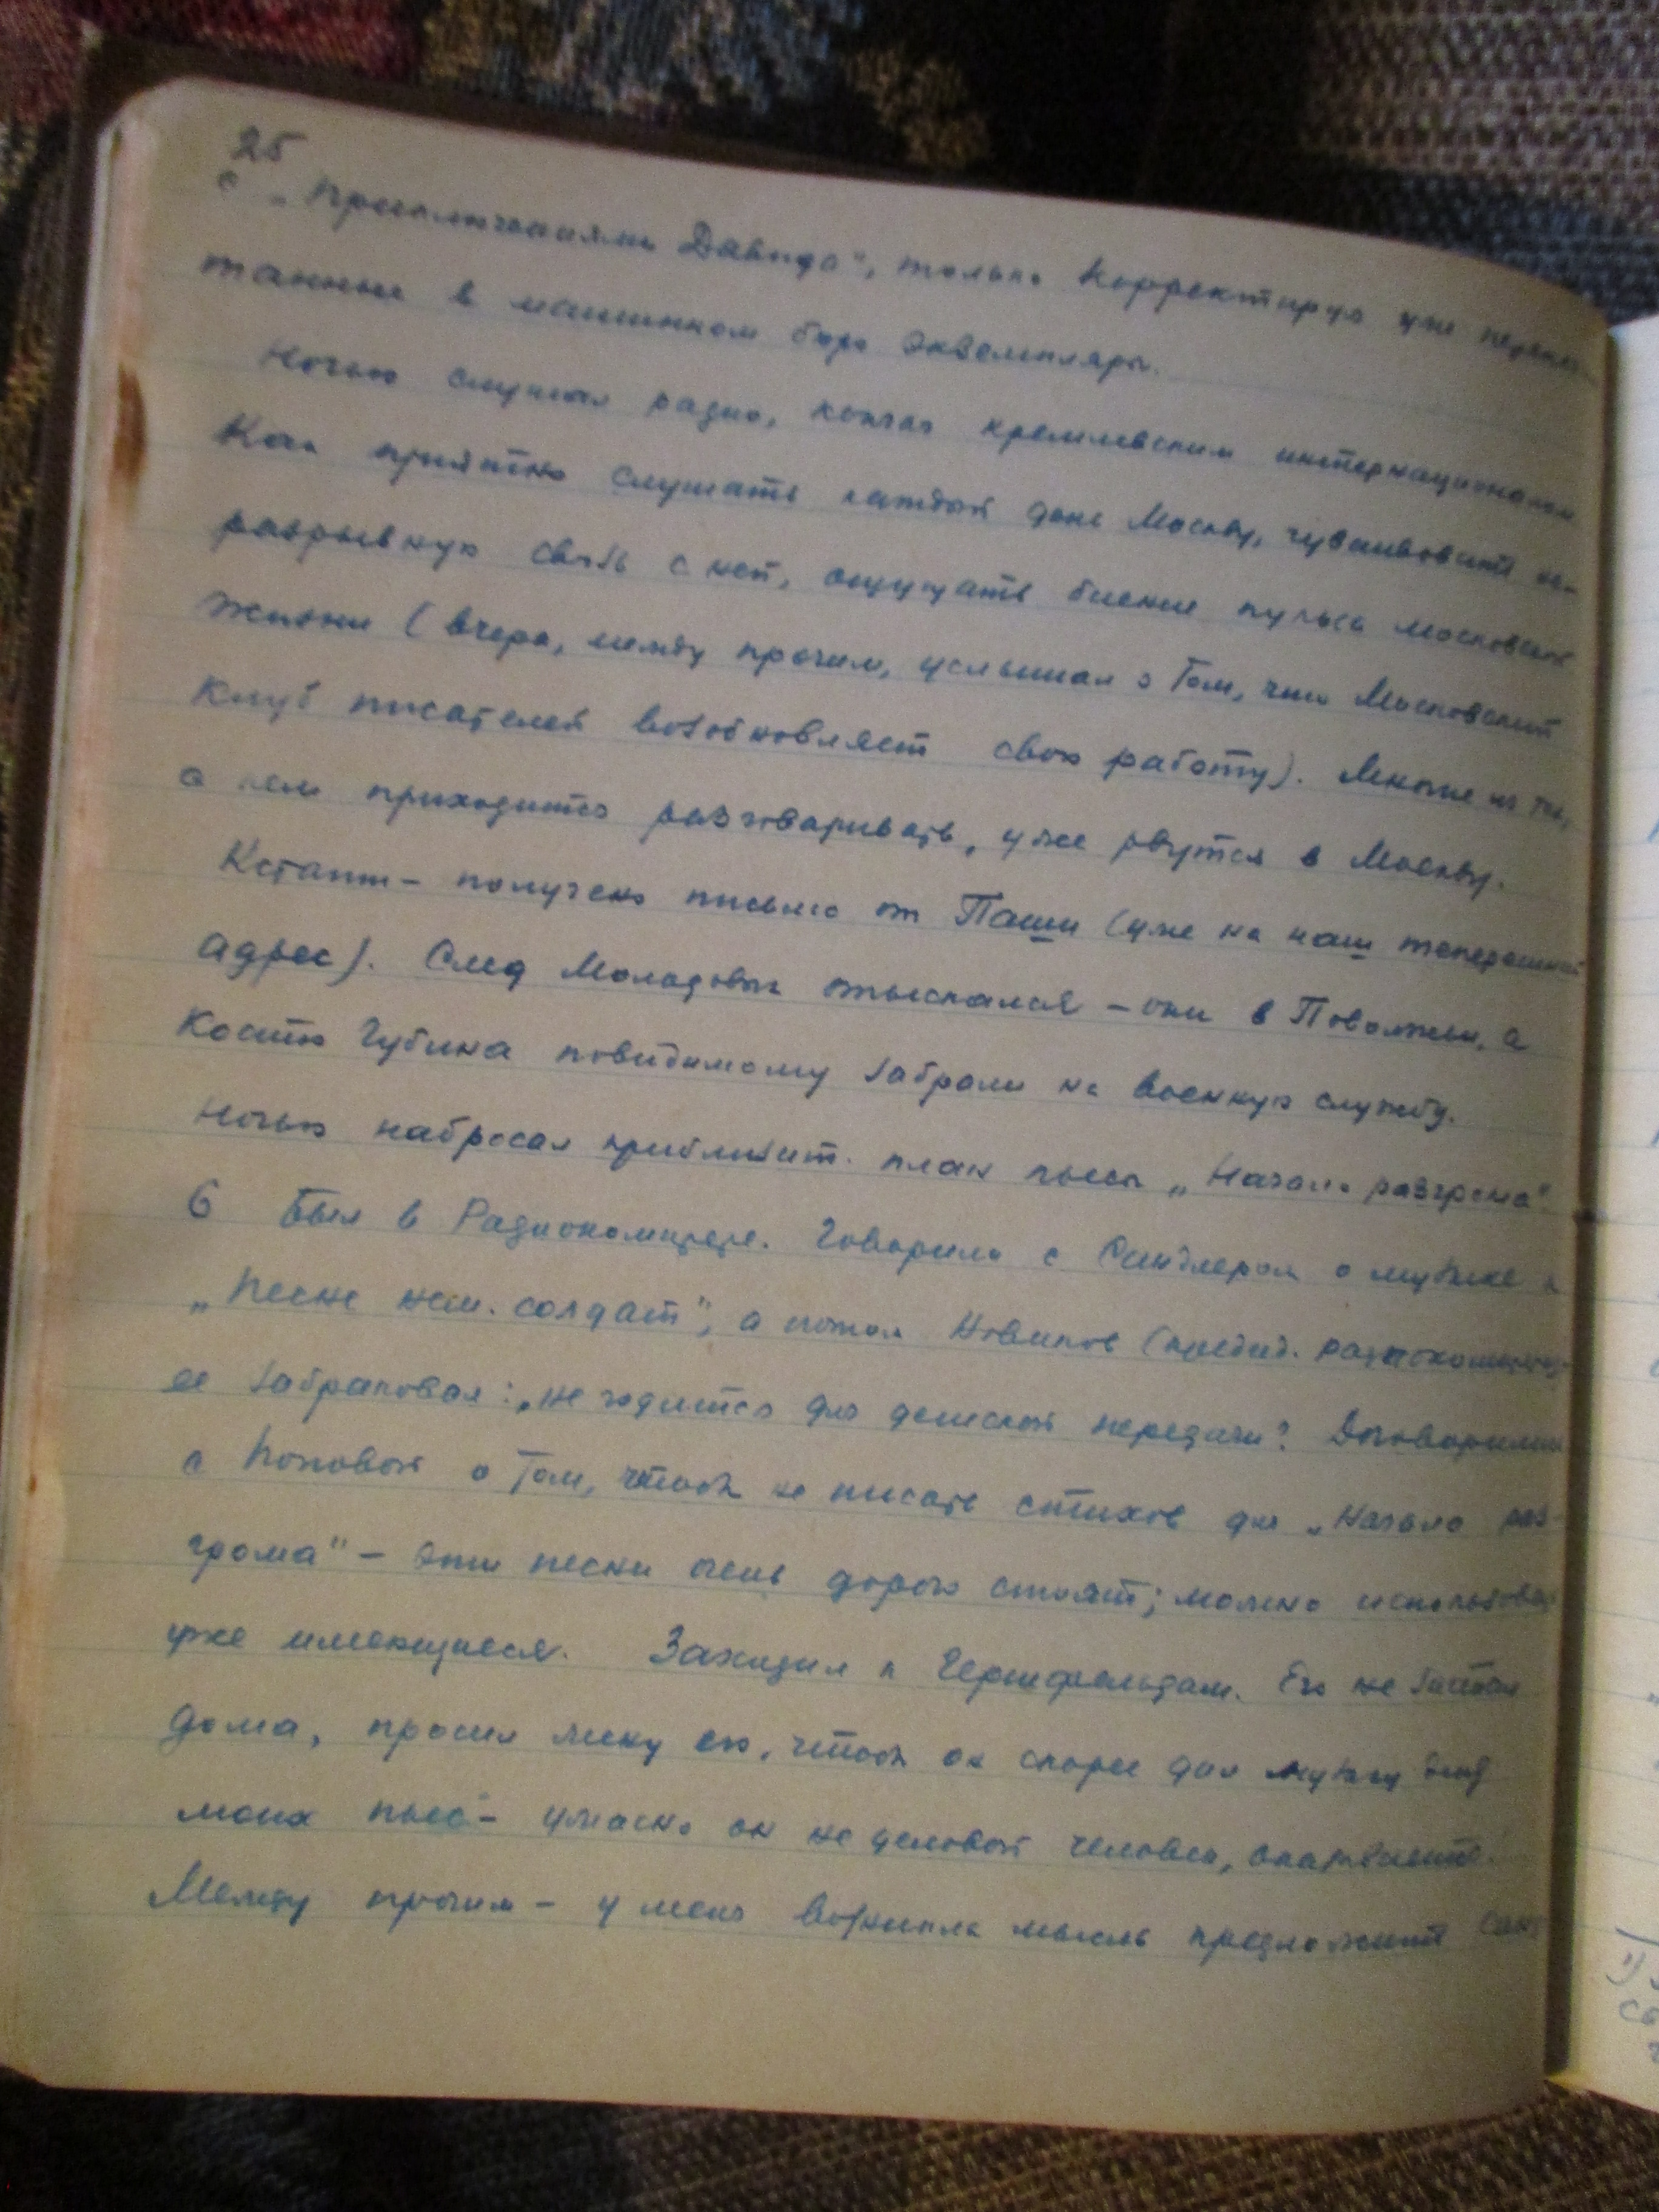 25
с „Приключениями Давида", только корректируя уже перепеча-
танные в машинном бюро экземпляры.
Ночью слушал радио, кончая кремлевским интернационалом
Как приятно слушать каждый день Москву, чувствовать не-
разрывную связь с ней, ощущать биение пульса московской
жизни (вчера, между прочим, услышал о том, что Московский
Клуб писателей возобновляет свою работу). Многие из тех,
с кем приходится разговаривать, уже рвутся в Москву.
Кстати – получено письмо от Паши (уже на наш теперешний
адрес). След Молодовых отыскался – они в Поволжьи, а
Костю Губина повидимому забрали на военную службу.
Ночью набросал приблизит. план пьесы „Начало разгрома"
6 Был в Радиокомитете. Говорил с Сандлером о музыке к
„Песне нем. солдат", а потом Новиков (председ. радиокомитета)
ее забраковал: „не годится для детской передачи". Договорились
с Поповой о том, чтоб не писать стихов для „Начало раз-
грома" – эти песни очень дорого стоят; можно использовать
уже имеющиеся. Заходил к Гершфельдам. Его не застал
дома, просил жену его, чтоб он скорее дал музыку для
моих пьес – ужасно он не деловой человек,
Между прочим – у меня возникла мысль предложить